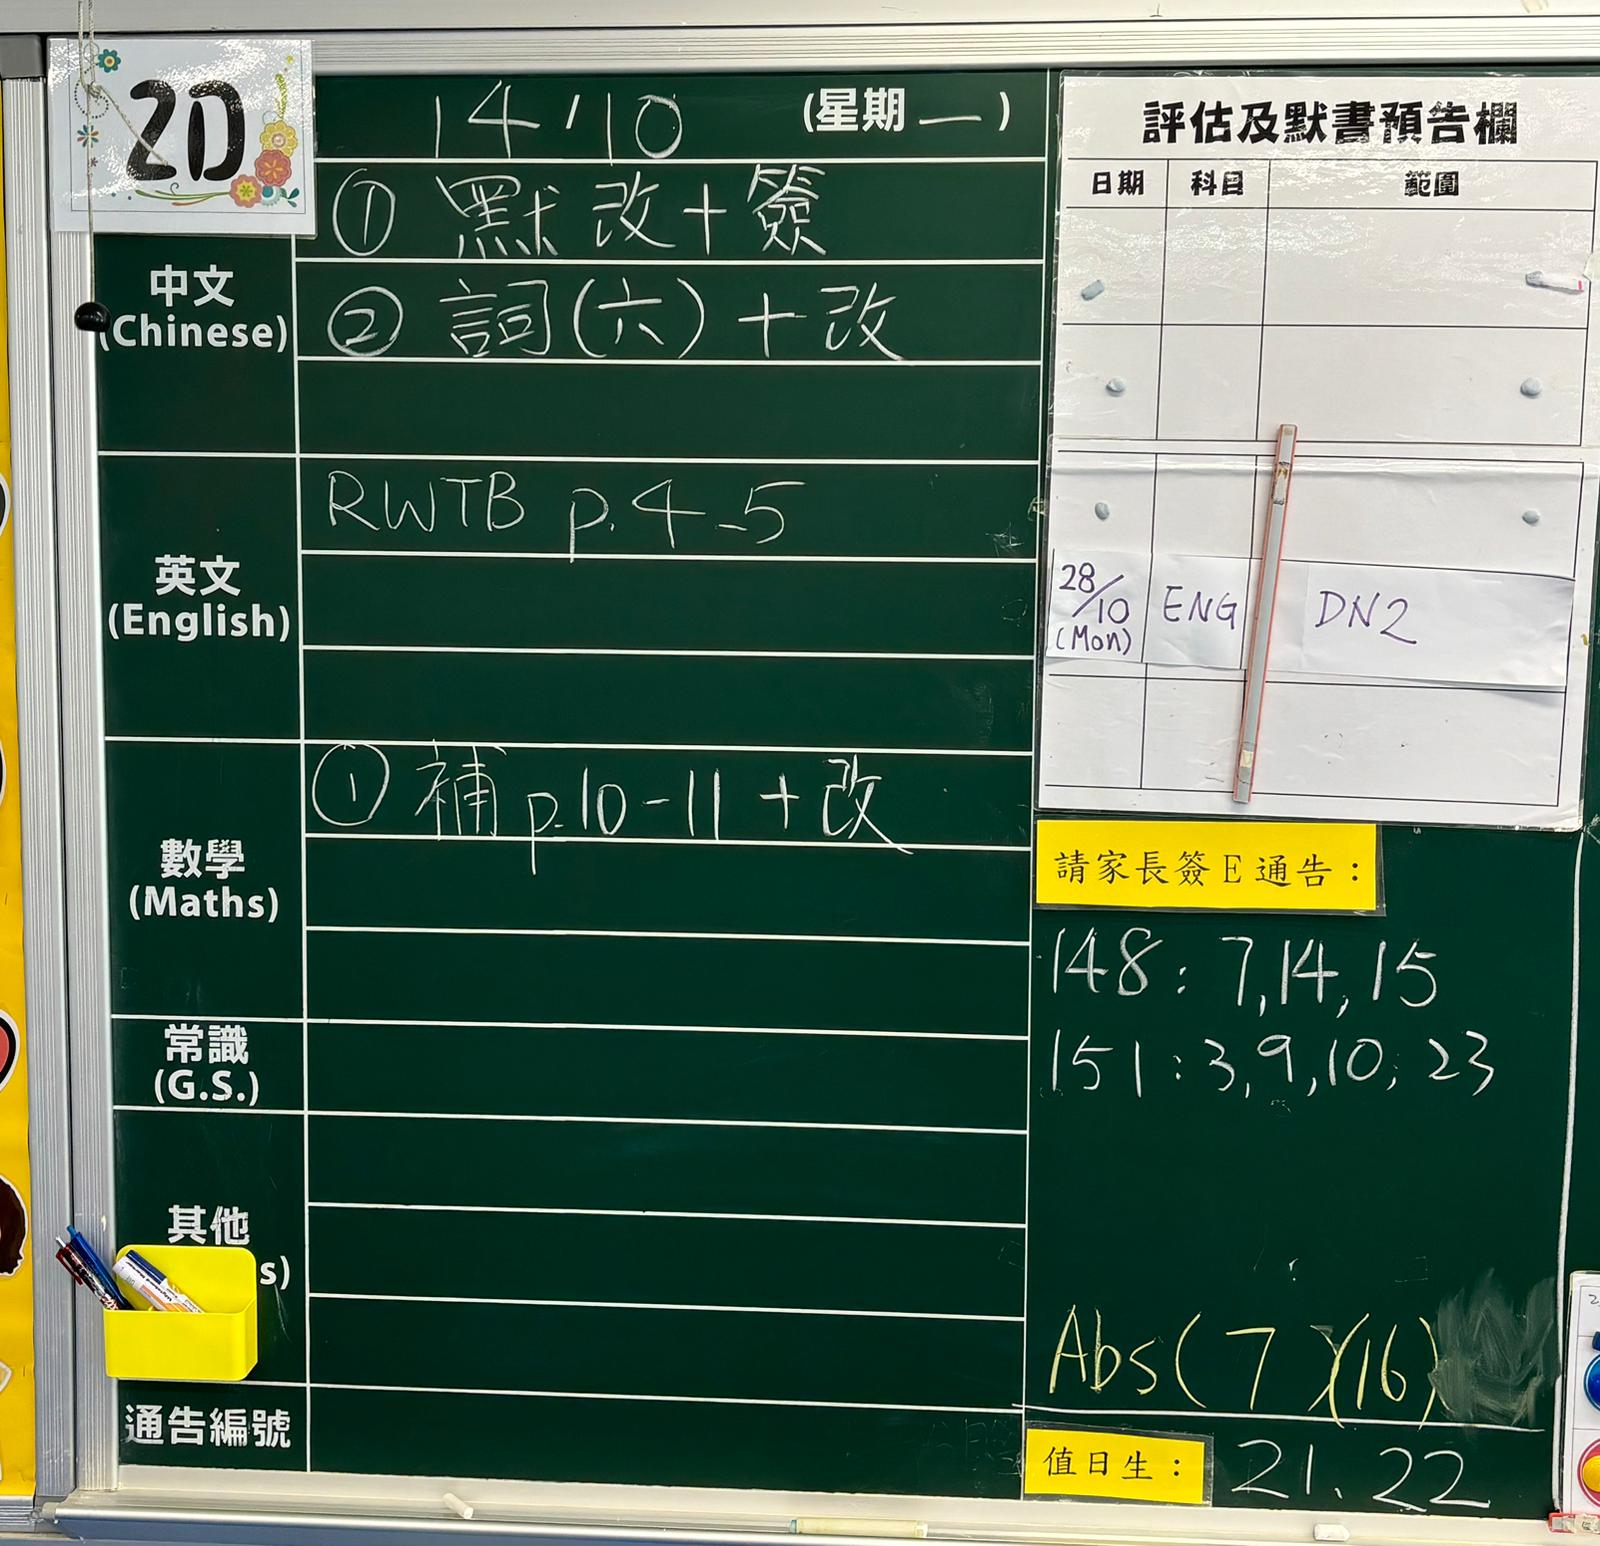 2D
14/10 (星期一)
中文
(Chinese)
① 默 改+簽
② 詞(六)+改
英文
(English)
RWTB p.4-5
數學
(Maths)
① 補 p.10-11+改
常識
(G.S.)
其他
s)
通告編號
評估及默書預告欄
日期 科目 範圍
28/10 (Mon) ENG DN2
請家長簽E通告：
148: 7,14,15
151: 3,9,10,23
Abs(7)(16)
值日生： 21.22